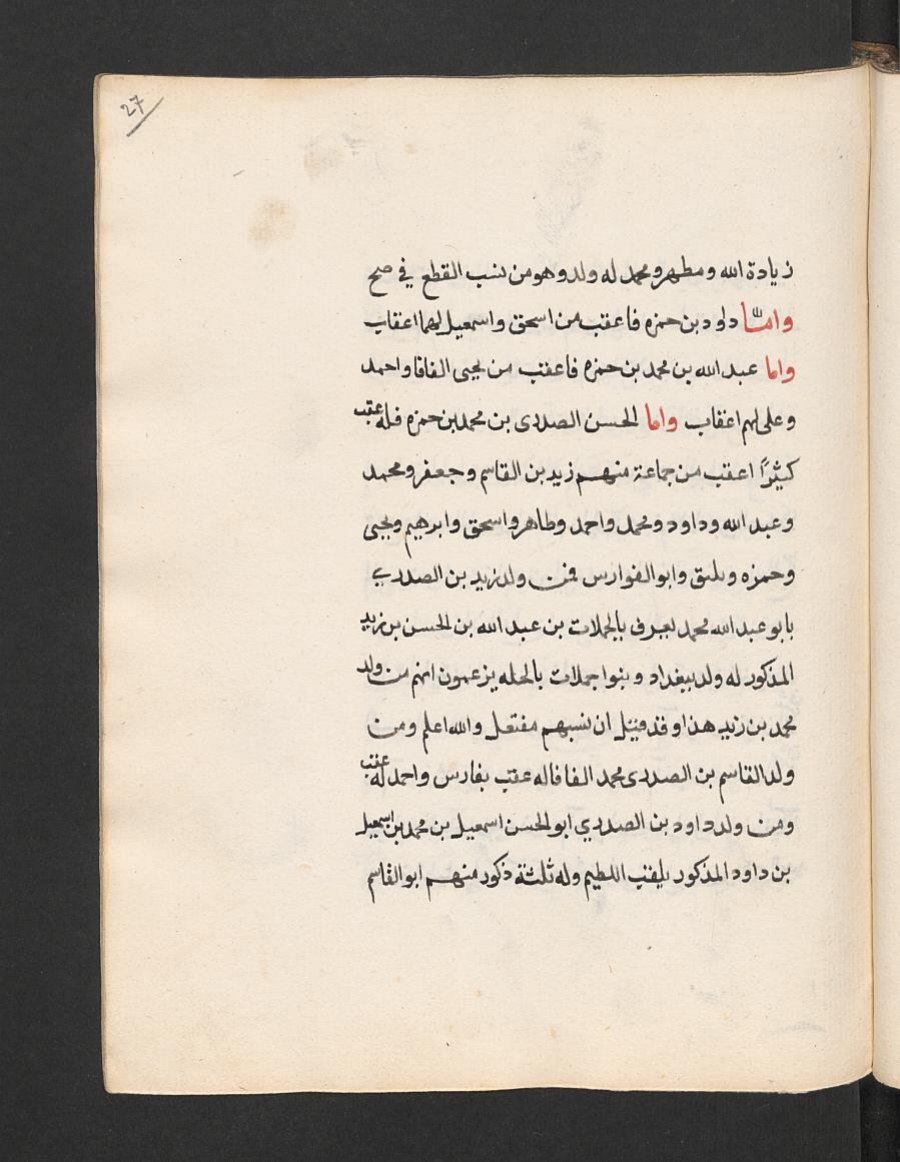 27
زيادة الله ومطهر ومحمد له ولد وهو من نسب القطع في صح
واما داود بن حمزه فاعقب من اسحق واسمعيل لهما اعقاب
واما عبد الله بن محمد بن حمزه فاعقب من يحيى الفافا واحمد
وعلى لهم اعقاب واما الحسن الصدرى بن محمد بن حمزه فله عقب
كثيرًا اعقب من جماعة منهم زيد بن القاسم وجعفر ومحمد
وعبد الله وداود ومحمد واحمد وطاهر واسحق وابرهيم ويحيى
وحمزه وابو الفوارس فمن ولد زيد بن الصدري
بابو عبد الله محمد يعرف بالجملات بن عبد الله بن الحسن بن زيد
المذكور له ولد ببغداد وبنوا جملات بالحله يزعمون انهم من ولد
محمد بن زيد هذا وقد قيل ان نسبهم مفتعل والله اعلم ومن
ولد القاسم بن الصدرى محمد الفافا له عقب بفارس واحمد له عقب
ومن ولد داود بن الصدري ابو الحسن اسمعيل بن محمد بن اسمعيل
بن داود المذكور يلقب اللطيم وله ثلثة ذكور منهم ابو القاسم